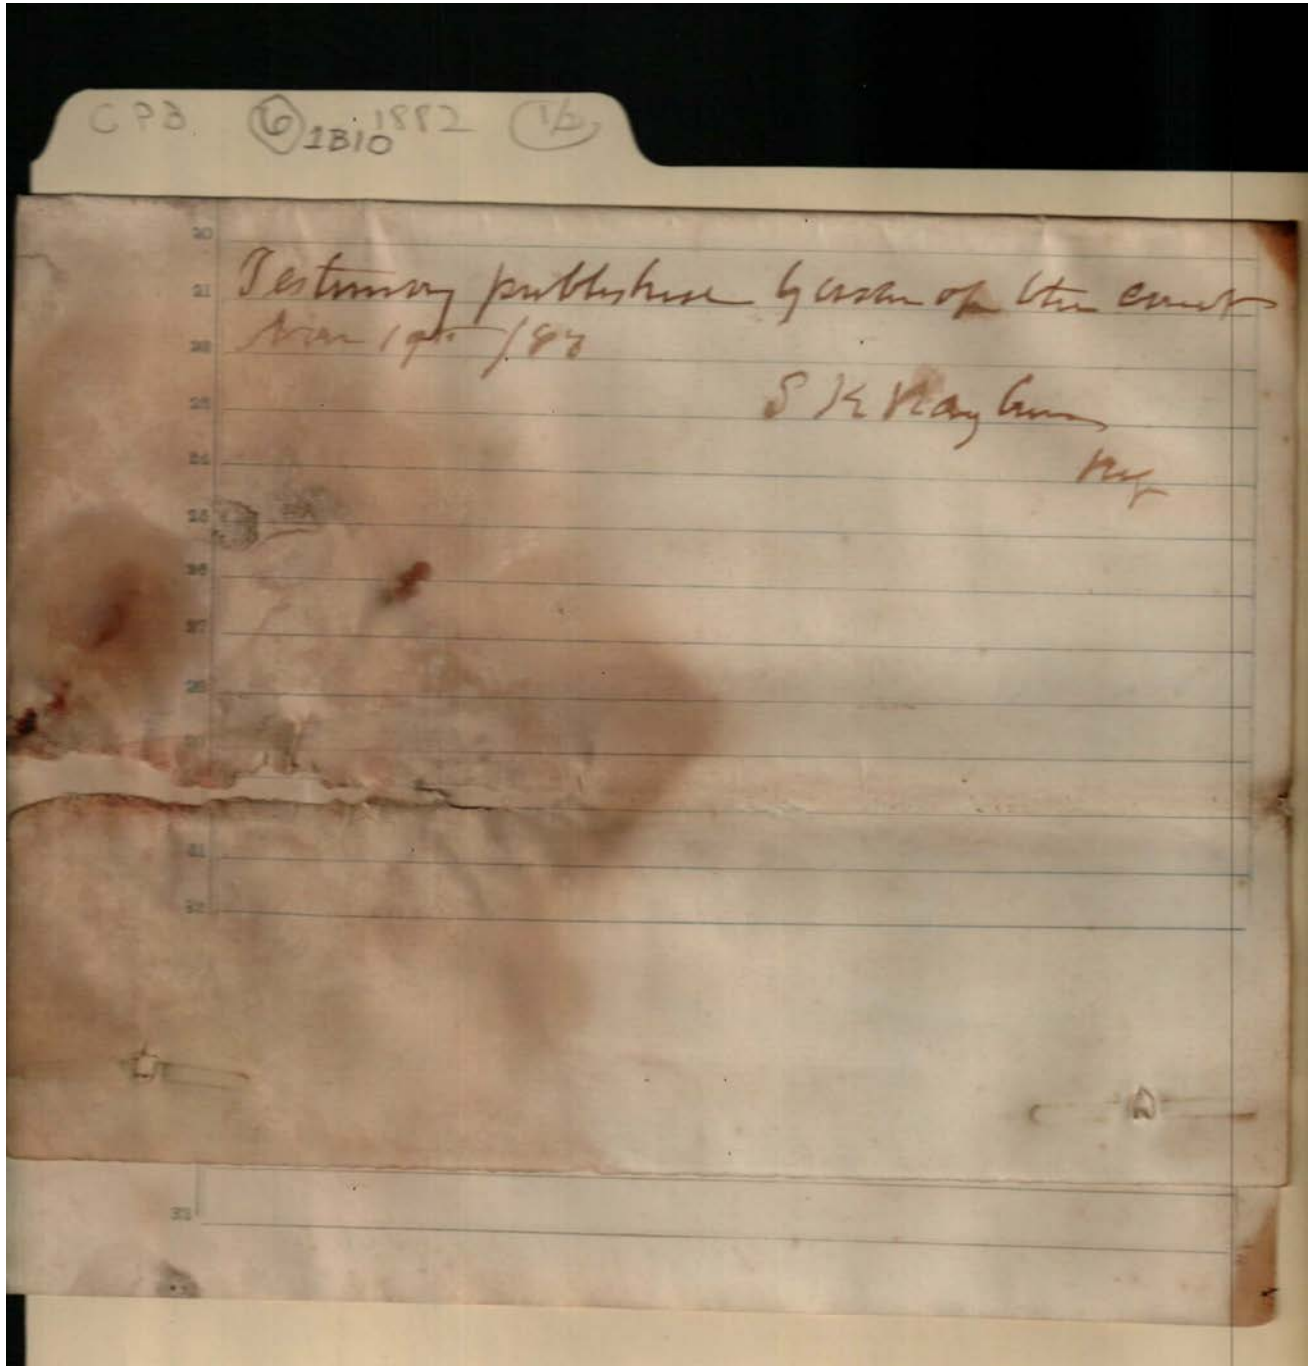 CPB 6 1B10 1882 1/2
20
21 Testimony published by order of the court
22 Nov 19th /83
23 S K Rayburn
24 Reg
25
26
27
28
31
32
33